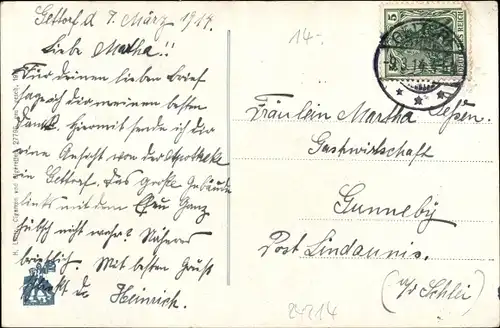 Gettorf d 7. März 1914.
Liebe Martha!!
Für deinen lieben Brief
sage ich dir meinen besten
Dank. Hiermit sende ich dir
eine Ansicht von der Apotheke
in Gettorf. Das große Gebäude
links mit dem Efeu Ganz
hübsch nicht wahr? Näheres
brieflich. Mit besten Gruß
Heinrich.
14-
5
Fräulein Martha
Gastwirtschaft
Gunneby
Post Lindaunis.
a/d Schlei
24214